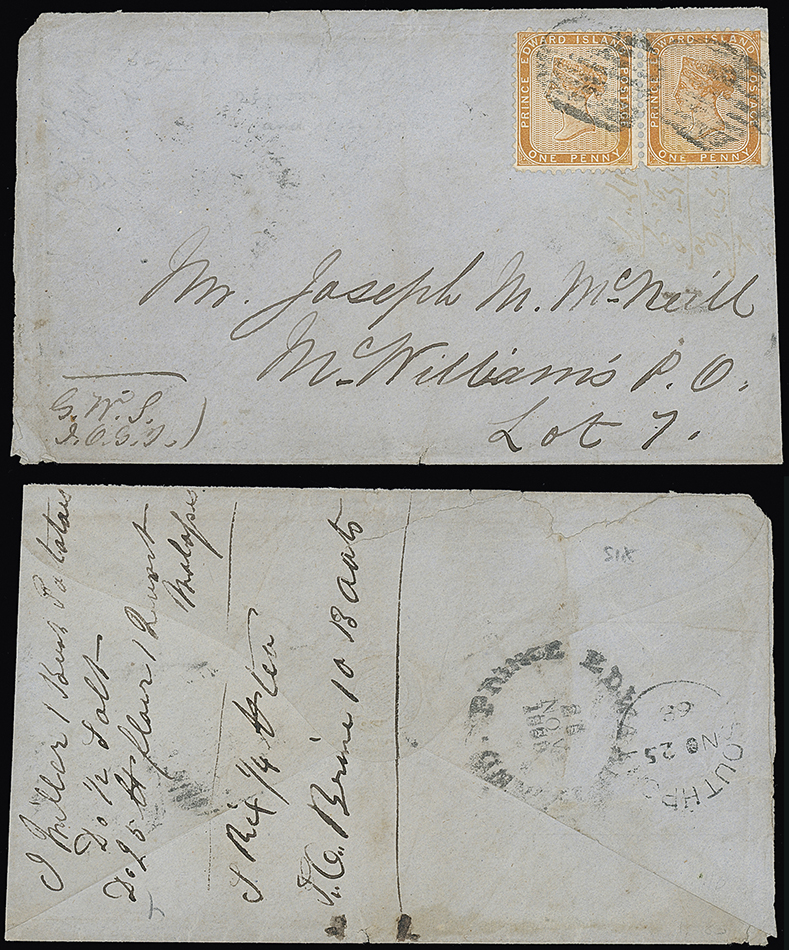 PRINCE EDWARD ISLAND POSTAGE
ONE PENNY
PRINCE EDWARD ISLAND POSTAGE
ONE PENNY
Mr. Joseph M. McNeill
McWilliam's P. O.
Lot 7.
G. W. S.
I. O. G. T.
J Miller 1 Bush Potatoes
Do 1/2 Salt
Do 25 lb flour 1 Quart
Molasses
1/4 lb tea
Brine 10
PRINCE EDWARD
NO 25
68
X12